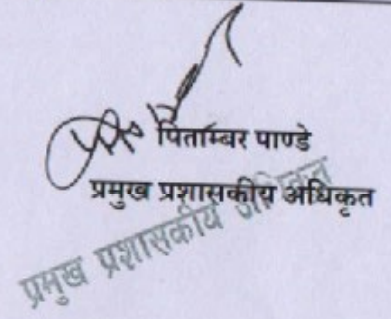 पिताम्बर पाण्डे
प्रमुख प्रशासकीय अधिकृत
प्रमुख प्रशासकीय अधिकृत